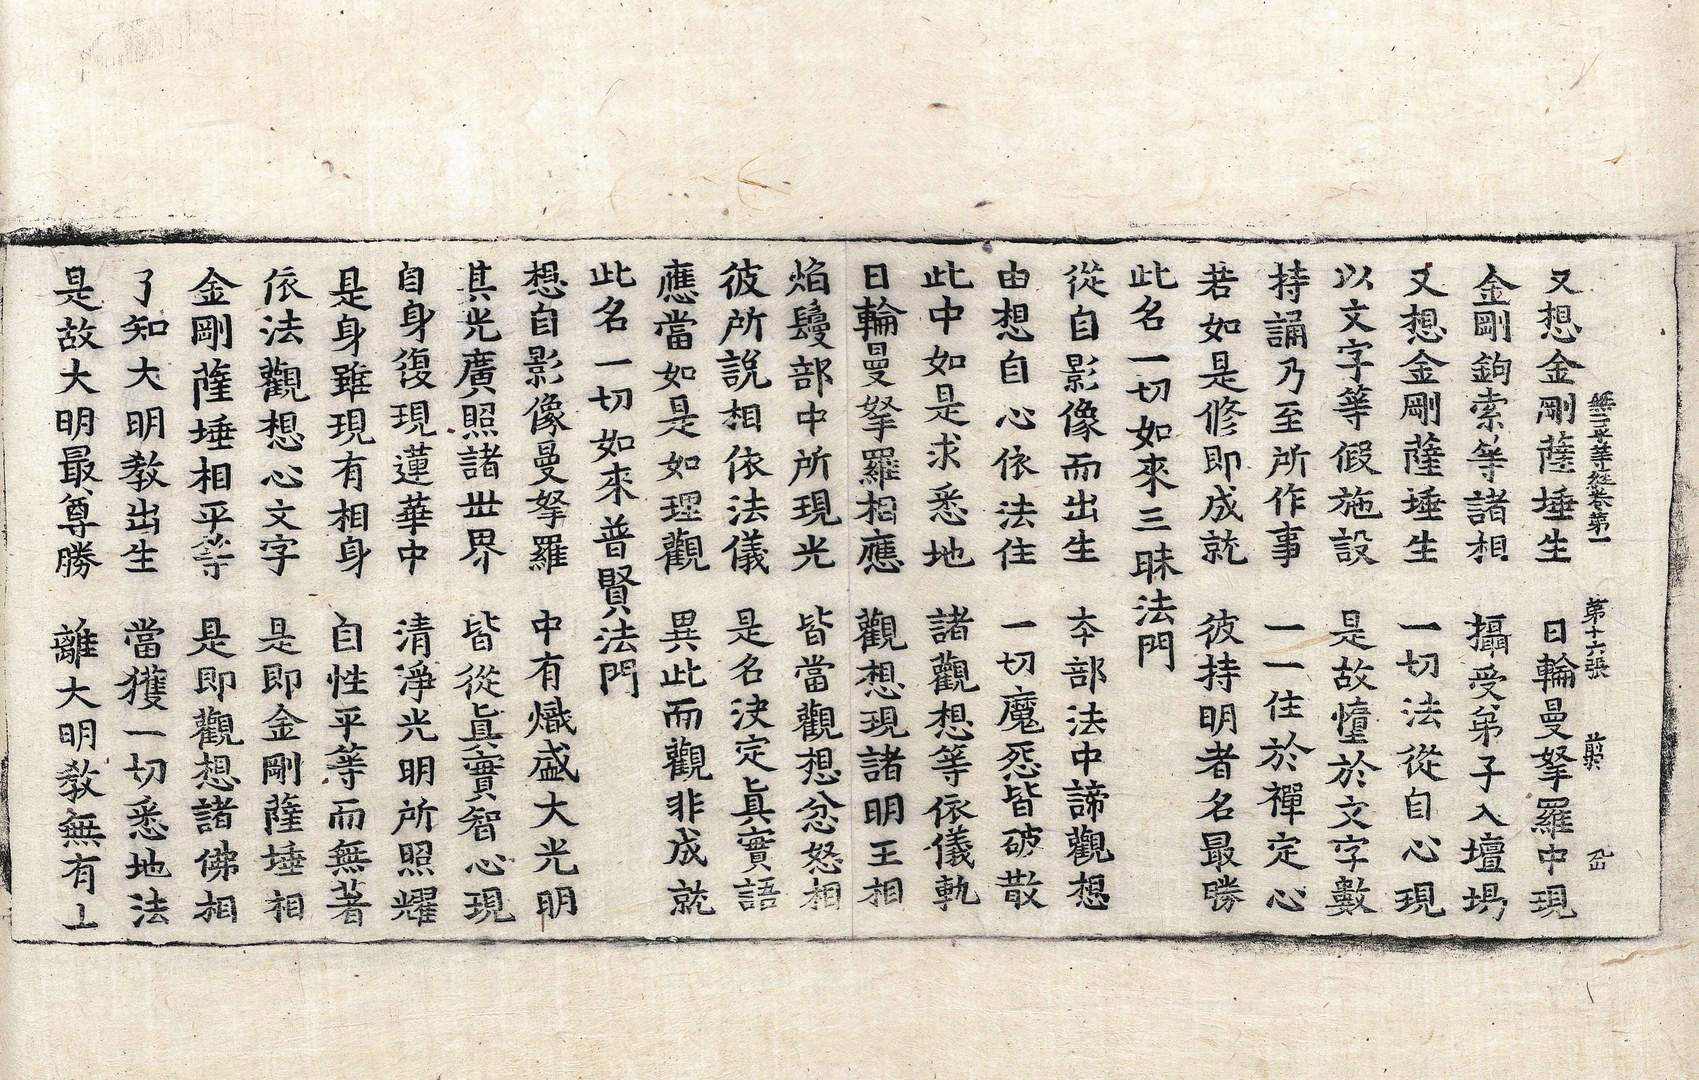 無二平等經卷第一　第十六張　斃
又想金剛薩埵生　日輪曼拏羅中現
金剛鉤索等諸相　攝受弟子入壇場
又想金剛薩埵生　一切法從自心現
以文字等假施設　是故憧於文字數
持誦乃至所作事　一一住於禪定心
若如是修即成就　彼持明者名最勝
此名一切如來三昧法門
從自影像而出生　本部法中諦觀想
由想自心依法住　一切魔怨皆破散
此中如是求悉地　諸觀想等依儀軌
日輪曼拏羅相應　觀想現諸明王相
焰鬘部中所現光　皆當觀想忿怒相
彼所說相依法儀　是名決定眞實語
應當如是如理觀　異此而觀非成就
此名一切如來普賢法門
想自影像曼拏羅　中有熾盛大光明
其光廣照諸世界　皆從眞實智心現
自身復現蓮華中　清淨光明所照耀
是身雖現有相身　自性平等而無著
依法觀想心文字　是即金剛薩埵相
金剛薩埵相平等　是即觀想諸佛相
了知大明教出生　當獲一切悉地法
是故大明最尊勝　離大明教無有上